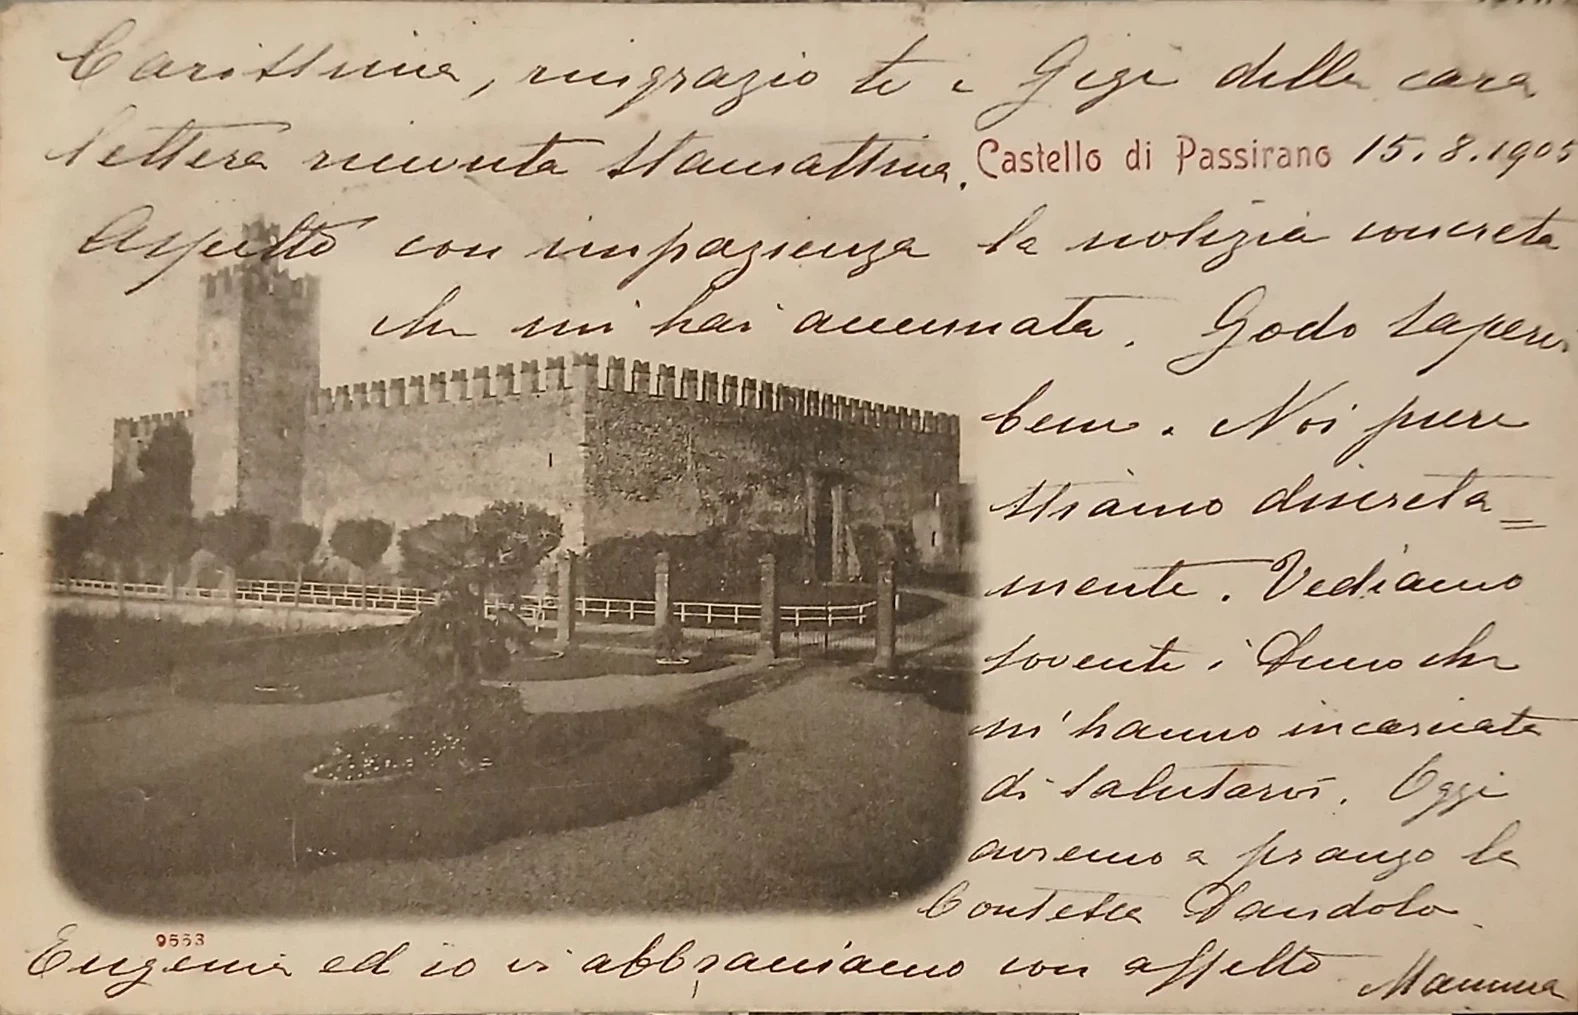 Carissima, ringrazio te e Gigi della cara
lettera ricevuta stamattina.
Castello di Passirano 15.8.1905
Aspetto con impazienza la notizia concreta
che mi hai accennata. Godo sapervi
bene. Noi pure
stiamo discreta=
mente. Vediamo
sovente i che
m'hanno incaricata
di salutarvi. Oggi
avremo a pranzo la
Contessa Dandolo
9553
Eugenia ed io vi abbracciamo con affetto
Mamma